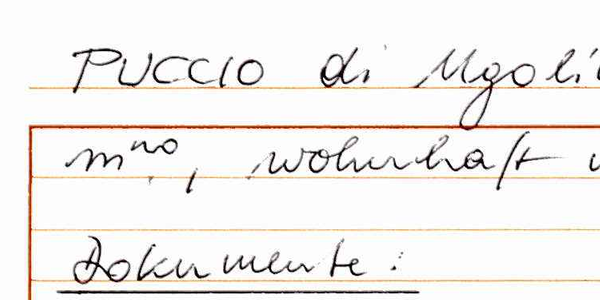 PUCCIO di Ugoli
mno, wohnhaft
Dokumente: